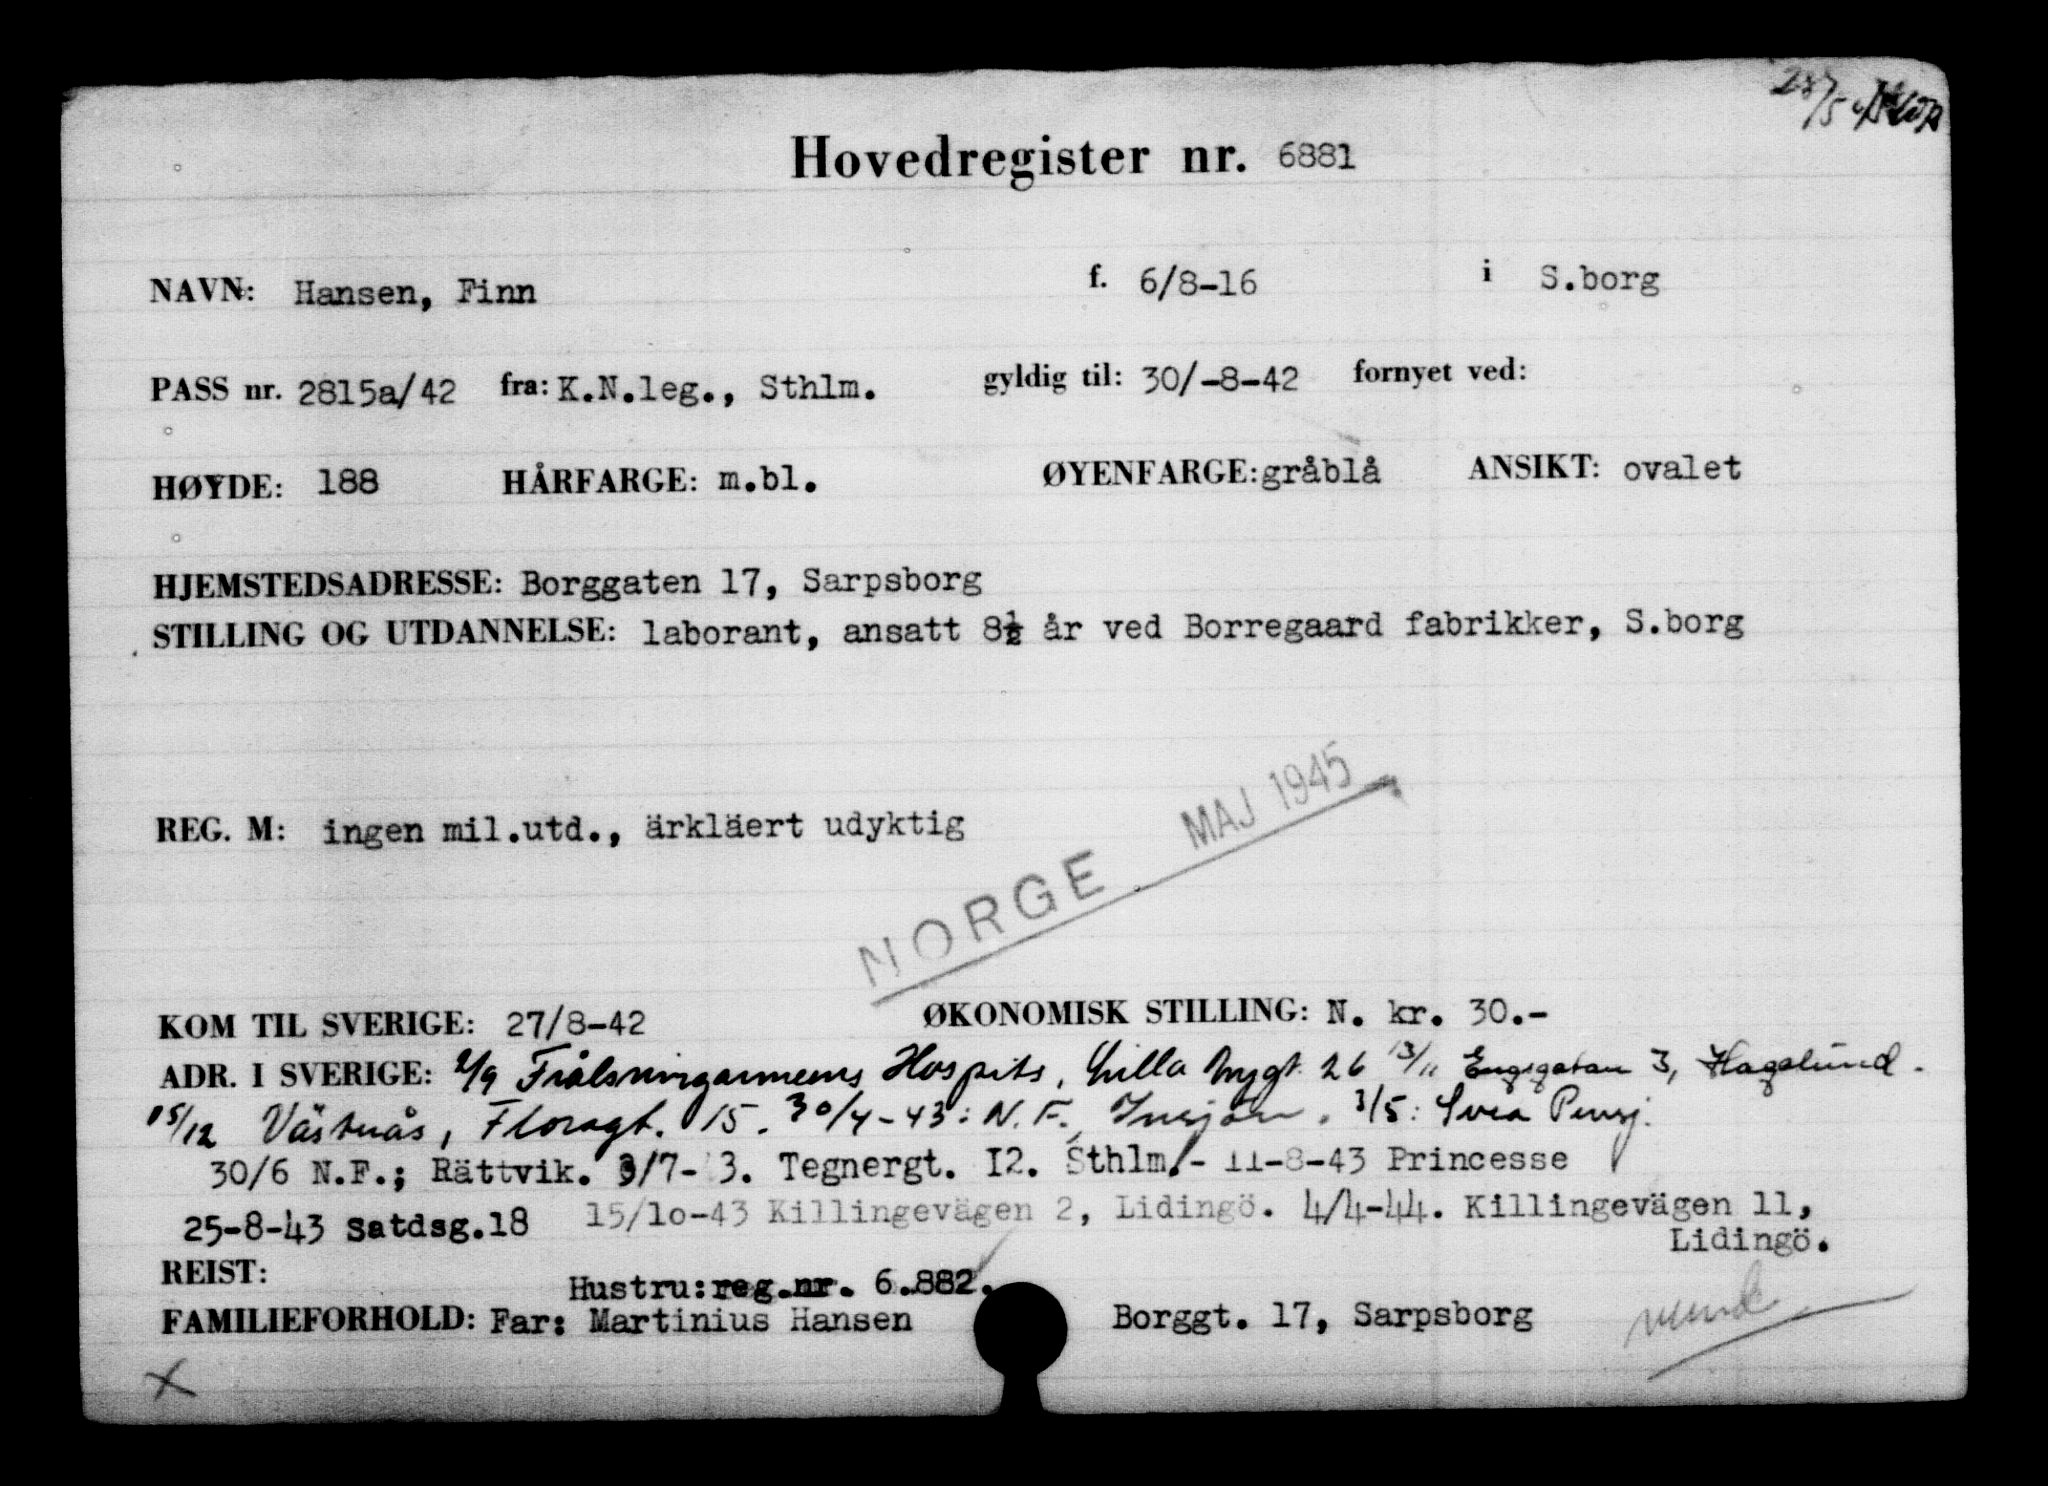 28/5
Hovedregister nr. 6881
NAVN: Hansen, Finn f. 6/8-16 i S.borg
PASS nr. 2815a/42 fra: K.N.leg., Sthlm. gyldig til: 30/-8-42 fornyet ved:
HØYDE: 188 HÅRFARGE: m.bl. ØYENFARGE: gråblå ANSIKT: ovalet
HJEMSTEDSADRESSE: Borggaten 17, Sarpsborg
STILLING OG UTDANNELSE: laborant, ansatt 8½ år ved Borregaard fabrikker, S.borg
REG. M: ingen mil.utd., ärkläert udyktig
NORGE MAJ 1945
KOM TIL SVERIGE: 27/8-42 ØKONOMISK STILLING: N. kr. 30.-
ADR. I SVERIGE: 2/9 Frälsningarmeens Hospits, Lilla Nygt. 26 13/11 Engsgatan 3, Hagalund.
15/12 Västerås, Floragt. 15. 30/4-43: N.F., Insjön. 3/5: Svea Pensj.
30/6 N.F.; Rättvik. 9/7- 3. Tegnergt. I2. Sthlm.- 11-8-43 Princesse
25-8-43 Satdsg.18 15/10-43 Killingevägen 2, Lidingö. 4/4-44. Killingevägen 11,
Lidingö.
REIST:
Hustru: reg.nr. 6.882.
FAMILIEFORHOLD: Far: Martinius Hansen Borggt. 17, Sarpsborg
X